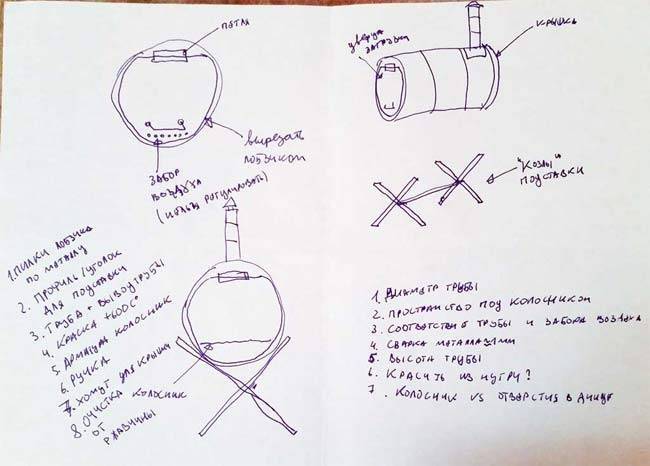 ПЕТЛИ
ВЫРЕЗАТЬ
ЛОБЗИКОМ
ЗАБОР
ВОЗДУХА
1. ПИЛКИ ЛОБЗИКА
ПО МЕТАЛЛУ
2. ПРОФИЛЬ/УГОЛОК
ДЛЯ ПОДСТАВКИ
3. ТРУБА + ВЫВОД ТРУБЫ
4. КРАСКА
5. АРМАТУРА КОЛОСНИК
6. РУЧКА
7. ХОМУТ ДЛЯ КРЫШКИ
8. ОЧИСТКА
ОТ
РЖАВЧИНЫ
КОЛОСНИК
ДВЕРЦА
ЗАГРУЗКИ
КРЫШКА
"КОЗЛЫ"
ПОДСТАВКИ
1. ДИАМЕТР ТРУБЫ
2. ПРОСТРАНСТВО ПОД КОЛОСНИКОМ
3. СООТВЕТСТВИЕ ТРУБЫ И ЗАБОРА ВОЗДУХА
4. СВАРКА
5. ВЫСОТА ТРУБЫ
6. КРАСИТЬ ИЗНУТРИ?
7. КОЛОСНИК VS ОТВЕРСТИЯ В ДНИЩЕ